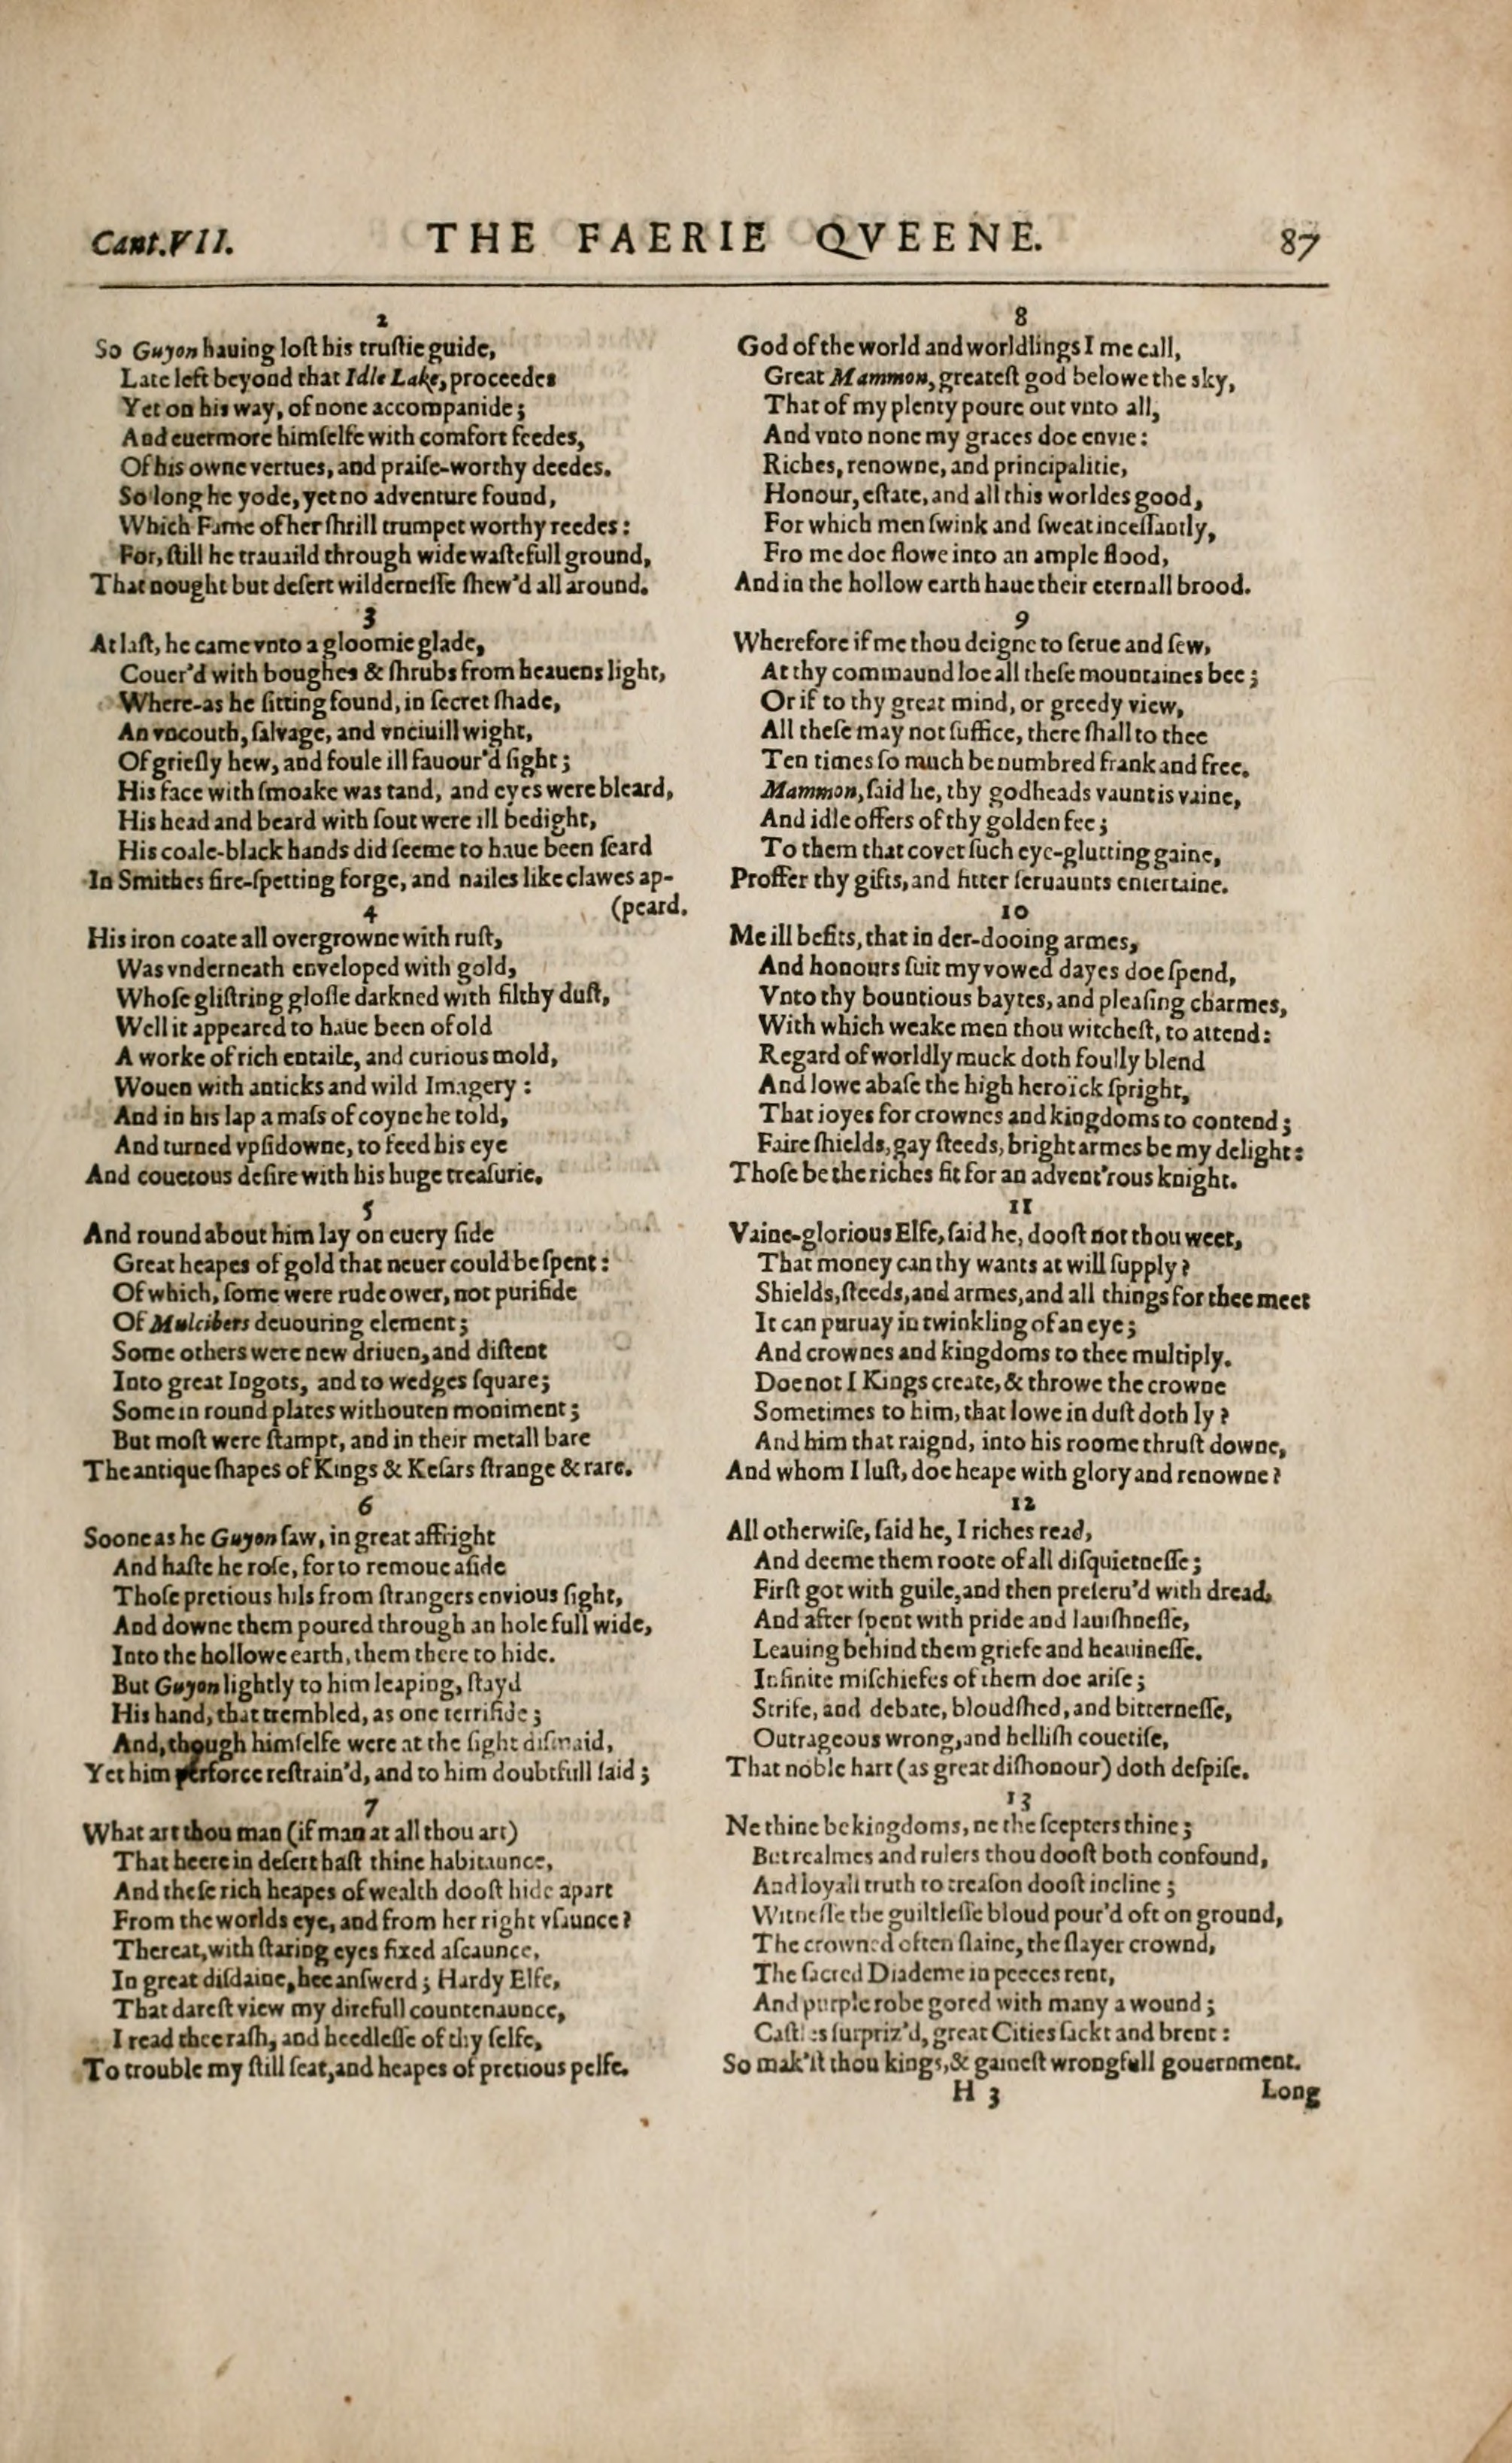 Cant.VII. THE FAERIE QVEENE. 87
2
So Guyon hauing loſt his truſtie guide,
Late left beyond that Idle Lake, proceedes
Yet on his way, of none accompanide;
And euermore himſelfe with comfort feedes,
Of his owne vertues, and praiſe-worthy deedes.
So long he yode, yet no adventure found,
Which Fame of her ſhrill trumpet worthy reedes:
For, ſtill he trauaild through wide waſtefull ground,
That nought but deſert wilderneſſe ſhew'd all around.
3
At laſt, he came vnto a gloomie glade,
Couer'd with boughes & ſhrubs from heauens light,
Where-as he ſitting found, in ſecret ſhade,
An vncouth, ſalvage, and vnciuill wight,
Of grieſly hew, and foule ill fauour'd ſight;
His face with ſmoake was tand, and eyes were bleard,
His head and beard with ſout were ill bedight,
His coale-black hands did ſeeme to haue been ſeard
In Smithes fire-ſpetting forge, and nailes like clawes ap-
(peard.
4
His iron coate all overgrowne with ruſt,
Was vnderneath enveloped with gold,
Whoſe gliſtring gloſſe darkned with filthy duſt,
Well it appeared to haue been of old
A worke of rich entaile, and curious mold,
Wouen with anticks and wild Imagery:
And in his lap a maſs of coyne he told,
And turned vpſidowne, to feed his eye
And couetous deſire with his huge treaſurie.
5
And round about him lay on euery ſide
Great heapes of gold that neuer could be ſpent:
Of which, ſome were rude ower, not purifide
Of Mulcibers deuouring element;
Some others were new driuen, and diſtent
Into great Ingots, and to wedges ſquare;
Some in round plates withouten moniment;
But moſt were ſtampt, and in their metall bare
The antique ſhapes of Kings & Keſars ſtrange & rare.
6
Soone as he Guyon ſaw, in great affright
And haſte he roſe, for to remoue aſide
Thoſe pretious hils from ſtrangers envious ſight,
And downe them poured through an hole full wide,
Into the hollowe earth, them there to hide.
But Guyon lightly to him leaping, ſtayd
His hand, that trembled, as one terrifide;
And, though himſelfe were at the ſight diſmaid,
Yet him perforce reſtrain'd, and to him doubtfull ſaid;
7
What art thou man (if man at all thou art)
That heere in deſert haſt thine habitaunce,
And theſe rich heapes of wealth dooſt hide apart
From the worlds eye, and from her right vſaunce?
Thereat, with ſtaring eyes fixed aſcaunce,
In great diſdaine, hee anſwerd; Hardy Elfe,
That dareſt view my direfull countenaunce,
I read thee raſh, and heedleſſe of thy ſelfe,
To trouble my ſtill ſeat, and heapes of pretious pelfe.
8
God of the world and worldlings I me call,
Great Mammon, greateſt god belowe the sky,
That of my plenty poure out vnto all,
And vnto none my graces doe envie:
Riches, renowne, and principalitie,
Honour, eſtate, and all this worldes good,
For which men ſwink and ſweat inceſſantly,
Fro me doe flowe into an ample flood,
And in the hollow earth haue their eternall brood.
9
Wherefore if me thou deigne to ſerue and ſew,
At thy commaund loe all theſe mountaines bee;
Or if to thy great mind, or greedy view,
All theſe may not ſuffice, there ſhall to thee
Ten times ſo much be numbred frank and free.
Mammon, ſaid he, thy godheads vaunt is vaine,
And idle offers of thy golden fee;
To them that covet ſuch eye-glutting gaine,
Proffer thy gifts, and fitter ſeruaunts entertaine.
10
Me ill befits, that in der-dooing armes,
And honours ſuit my vowed dayes doe ſpend,
Vnto thy bountious baytes, and pleaſing charmes,
With which weake men thou witcheſt, to attend:
Regard of worldly muck doth foully blend
And lowe abaſe the high heroïck ſpright,
That ioyes for crownes and kingdoms to contend;
Faire ſhields, gay ſteeds, bright armes be my delight:
Thoſe be the riches fit for an advent'rous knight.
11
Vaine-glorious Elfe, ſaid he, dooſt not thou weet,
That money can thy wants at will ſupply?
Shields, ſteeds, and armes, and all things for thee meet
It can puruay in twinkling of an eye;
And crownes and kingdoms to thee multiply.
Doe not I Kings create, & throwe the crowne
Sometimes to him, that lowe in duſt doth ly?
And him that raignd, into his roome thruſt downe,
And whom I luſt, doe heape with glory and renowne?
12
All otherwiſe, ſaid he, I riches read,
And deeme them roote of all diſquietneſſe;
Firſt got with guile, and then preſeru'd with dread,
And after ſpent with pride and lauiſhneſſe,
Leauing behind them griefe and heauineſſe.
Infinite miſchiefes of them doe ariſe;
Strife, and debate, bloudſhed, and bitterneſſe,
Outrageous wrong, and helliſh couetiſe,
That noble hart (as great diſhonour) doth deſpiſe.
13
Ne thine be kingdoms, ne the ſcepters thine;
But realmes and rulers thou dooſt both confound,
And loyall truth to treaſon dooſt incline;
Witneſſe the guiltleſſe bloud pour'd oft on ground,
The crowned often ſlaine, the ſlayer crownd,
The ſacred Diademe in peeces rent,
And purple robe gored with many a wound;
Caſtles ſurpriz'd, great Cities ſackt and brent:
So mak'ſt thou kings, & gaineſt wrongfull gouernment.
H 3 Long